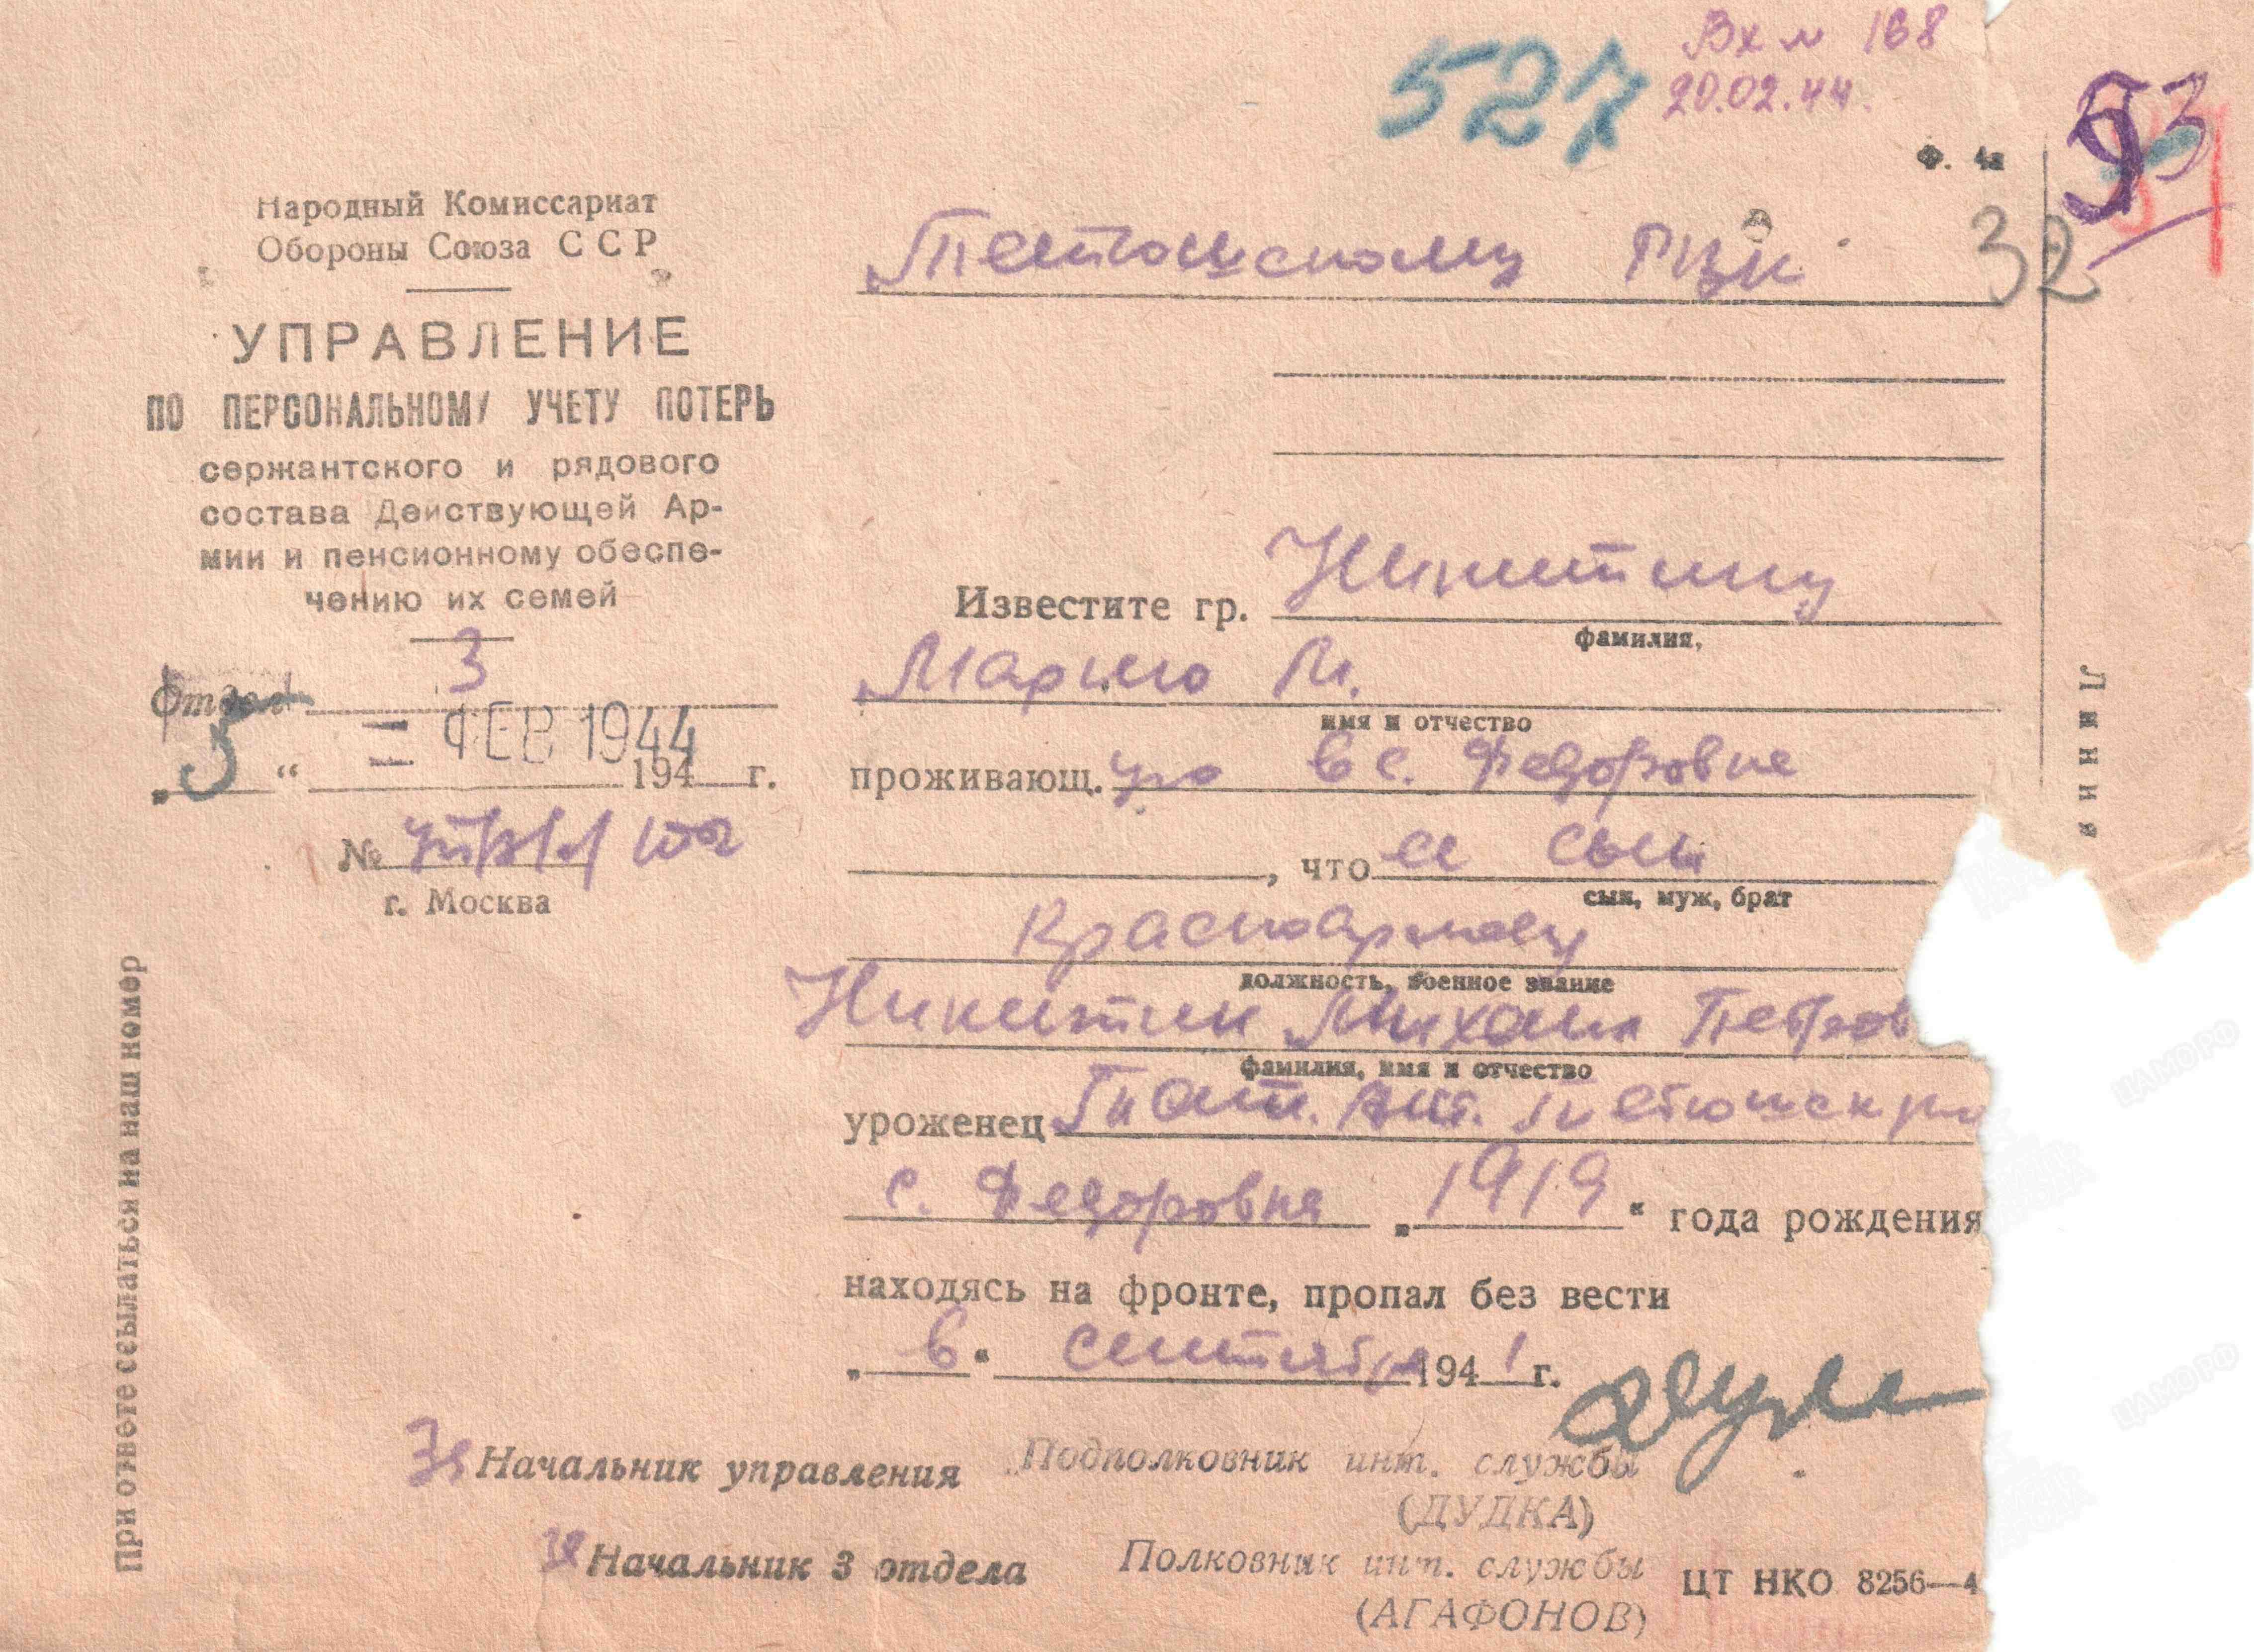 527
Вх № 168
20.02.44.
53
Ф. 4а
32
Народный Комиссариат
Обороны Союза ССР
УПРАВЛЕНИЕ
ПО ПЕРСОНАЛЬНОМУ УЧЕТУ ПОТЕРЬ
сержантского и рядового
состава Действующей Ар-
мии и пенсионному обеспе-
чению их семей
Отдел 3
„5“ ФЕВ 1944 194 г.
№
г. Москва
При ответе ссылаться на наш номер
Тетюшскому РВК
Известите гр. Никитину
фамилия,
Марию М.
имя и отчество
проживающ. ую в с. Федоровке
, что ее сын
сын, муж, брат
Красноармеец
должность, военное звание
Никитин Михаил Петров
фамилия, имя и отчество
уроженец Тат. Тетюшск
с. Федоровка „1919“ года рождения
находясь на фронте, пропал без вести
„в“ сентябре 1941 г.
Начальник управления Подполковник инт. службы
(ДУДКА)
Начальник 3 отдела Полковник инт. службы
(АГАФОНОВ)
ЦТ НКО 8256—4
Линия
ЦАМО.РФ